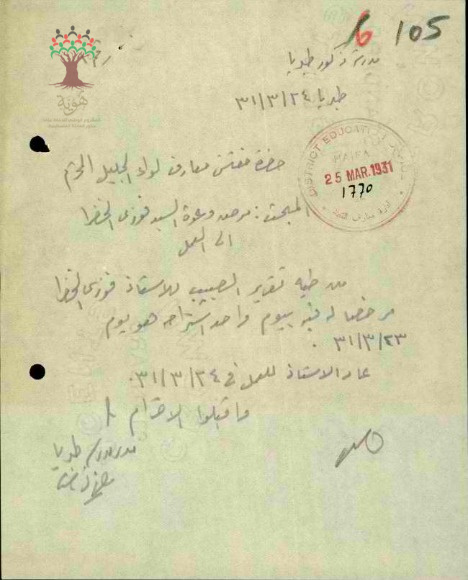 6 105
مدرسة ذكور طبريا
طبريا ٣١/٣/٢٤
DISTRICT EDUCATION
HAIFA
25 MAR. 1931
1770
هوية
حضرة مفتش معارف لواء الجليل المحترم
المبحث: مرض وعودة السيد فوزي الخضرا
الى العمل
من طيه تقرير الطبيب للاستاذ فوزي الخضرا
مرخصا له فيه بيوم واحد استراحه هو يوم
٣١/٣/٢٣.
عاد الاستاذ للعمل في ٣١/٣/٢٤.
واقبلوا الاحترام
مدير مدرسة طبريا